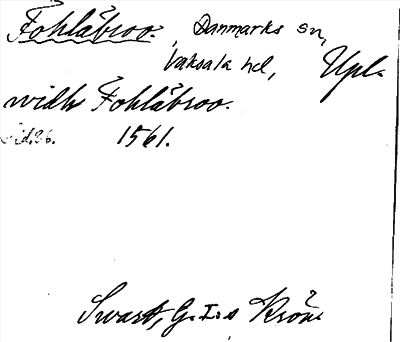 Fohlåbroo. Danmarks sn,
Vaksala hd, Upl.
widh Fohlåbroo.
Sid. 86. 1561.
Swart, G. I:s Krön.